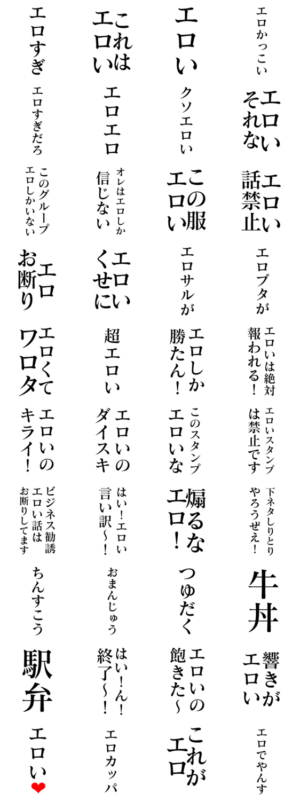 エロすぎ
これは
エロい
エロい
エロかっこい
エロすぎだろ
エロエロ
クソエロい
エロい
それな
このグループ
エロしかいない
オレはエロしか
信じない
この服
エロい
エロい
話禁止
エロ
お断り
エロい
くせに
エロサルが
エロブタが
エロくて
ワロタ
超エロい
エロしか
勝たん!
エロいは絶対
報われる!
エロいの
キライ!
エロいの
ダイスキ
このスタンプ
エロいな
エロいスタンプ
は禁止です
ビジネス勧誘
エロい話は
お断りしてます
はい!エロい
言い訳〜!
煽るな
エロ!
下ネタしりとり
やろうぜぇ!
ちんすこう
おまんじゅう
つゆだく
牛丼
駅弁
はい!ん!
終了〜!
エロいの
飽きた〜
響きが
エロい
エロい❤
エロカッパ
これが
エロ
エロでやんす